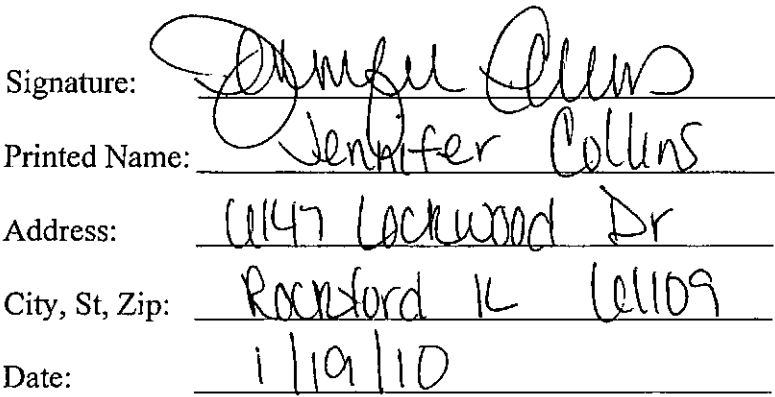 Signature: Jennifer Collins
Printed Name: Jennifer Collins
Address: 6147 Lockwood Dr
City, St, Zip: Rockford IL 61109
Date: 1/19/10